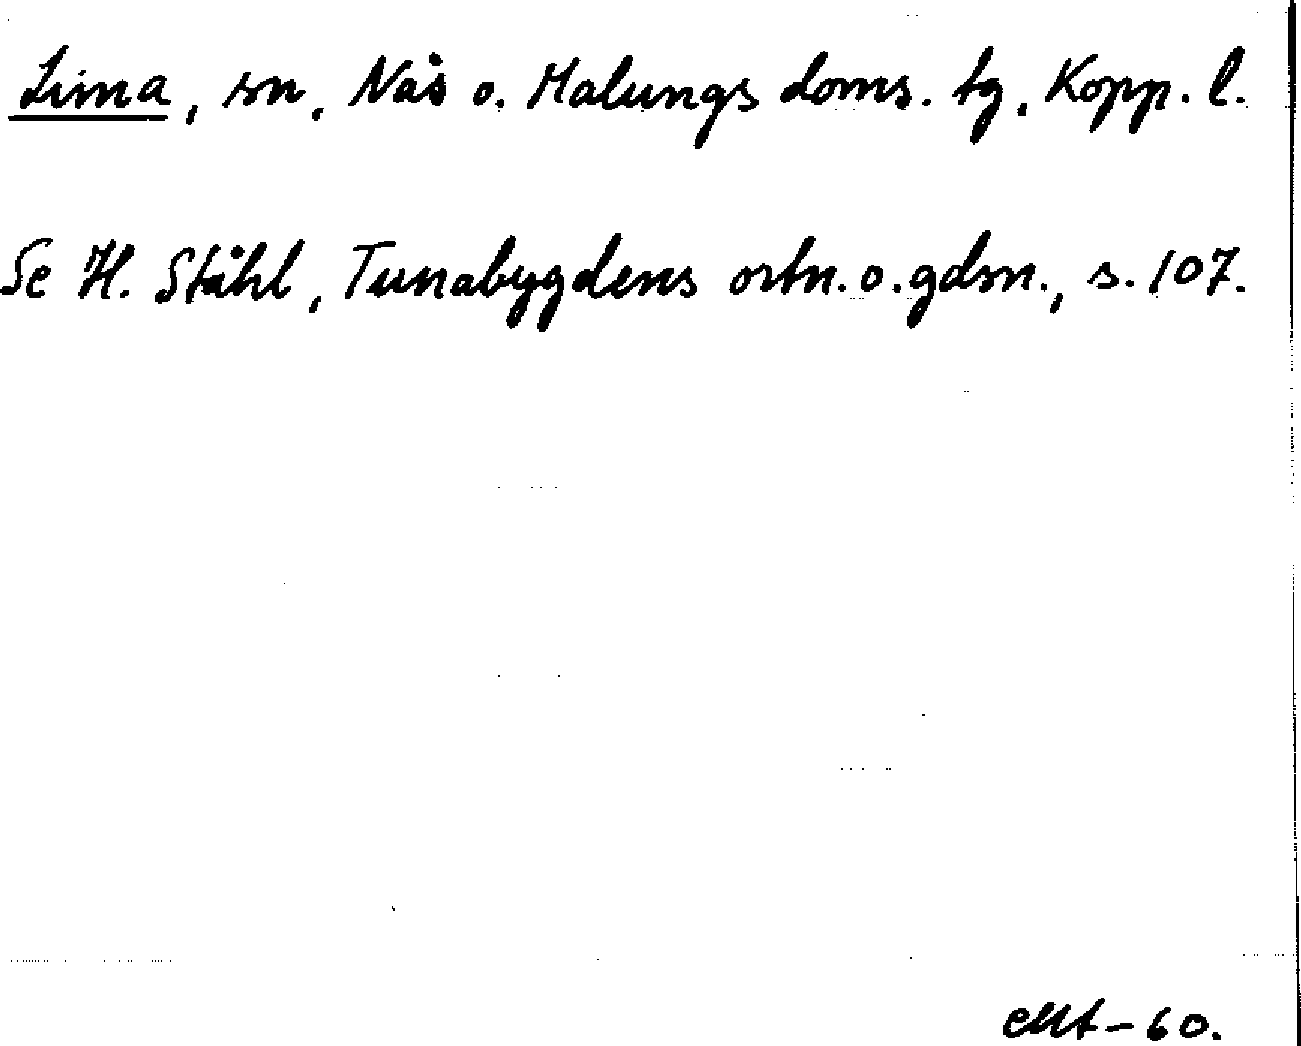 Lima, sn, Nås o. Malungs doms. tg, Kopp. l.
Se H. Ståhl, Tunabygdens ortn. o. gdsn., s. 107.
-60.